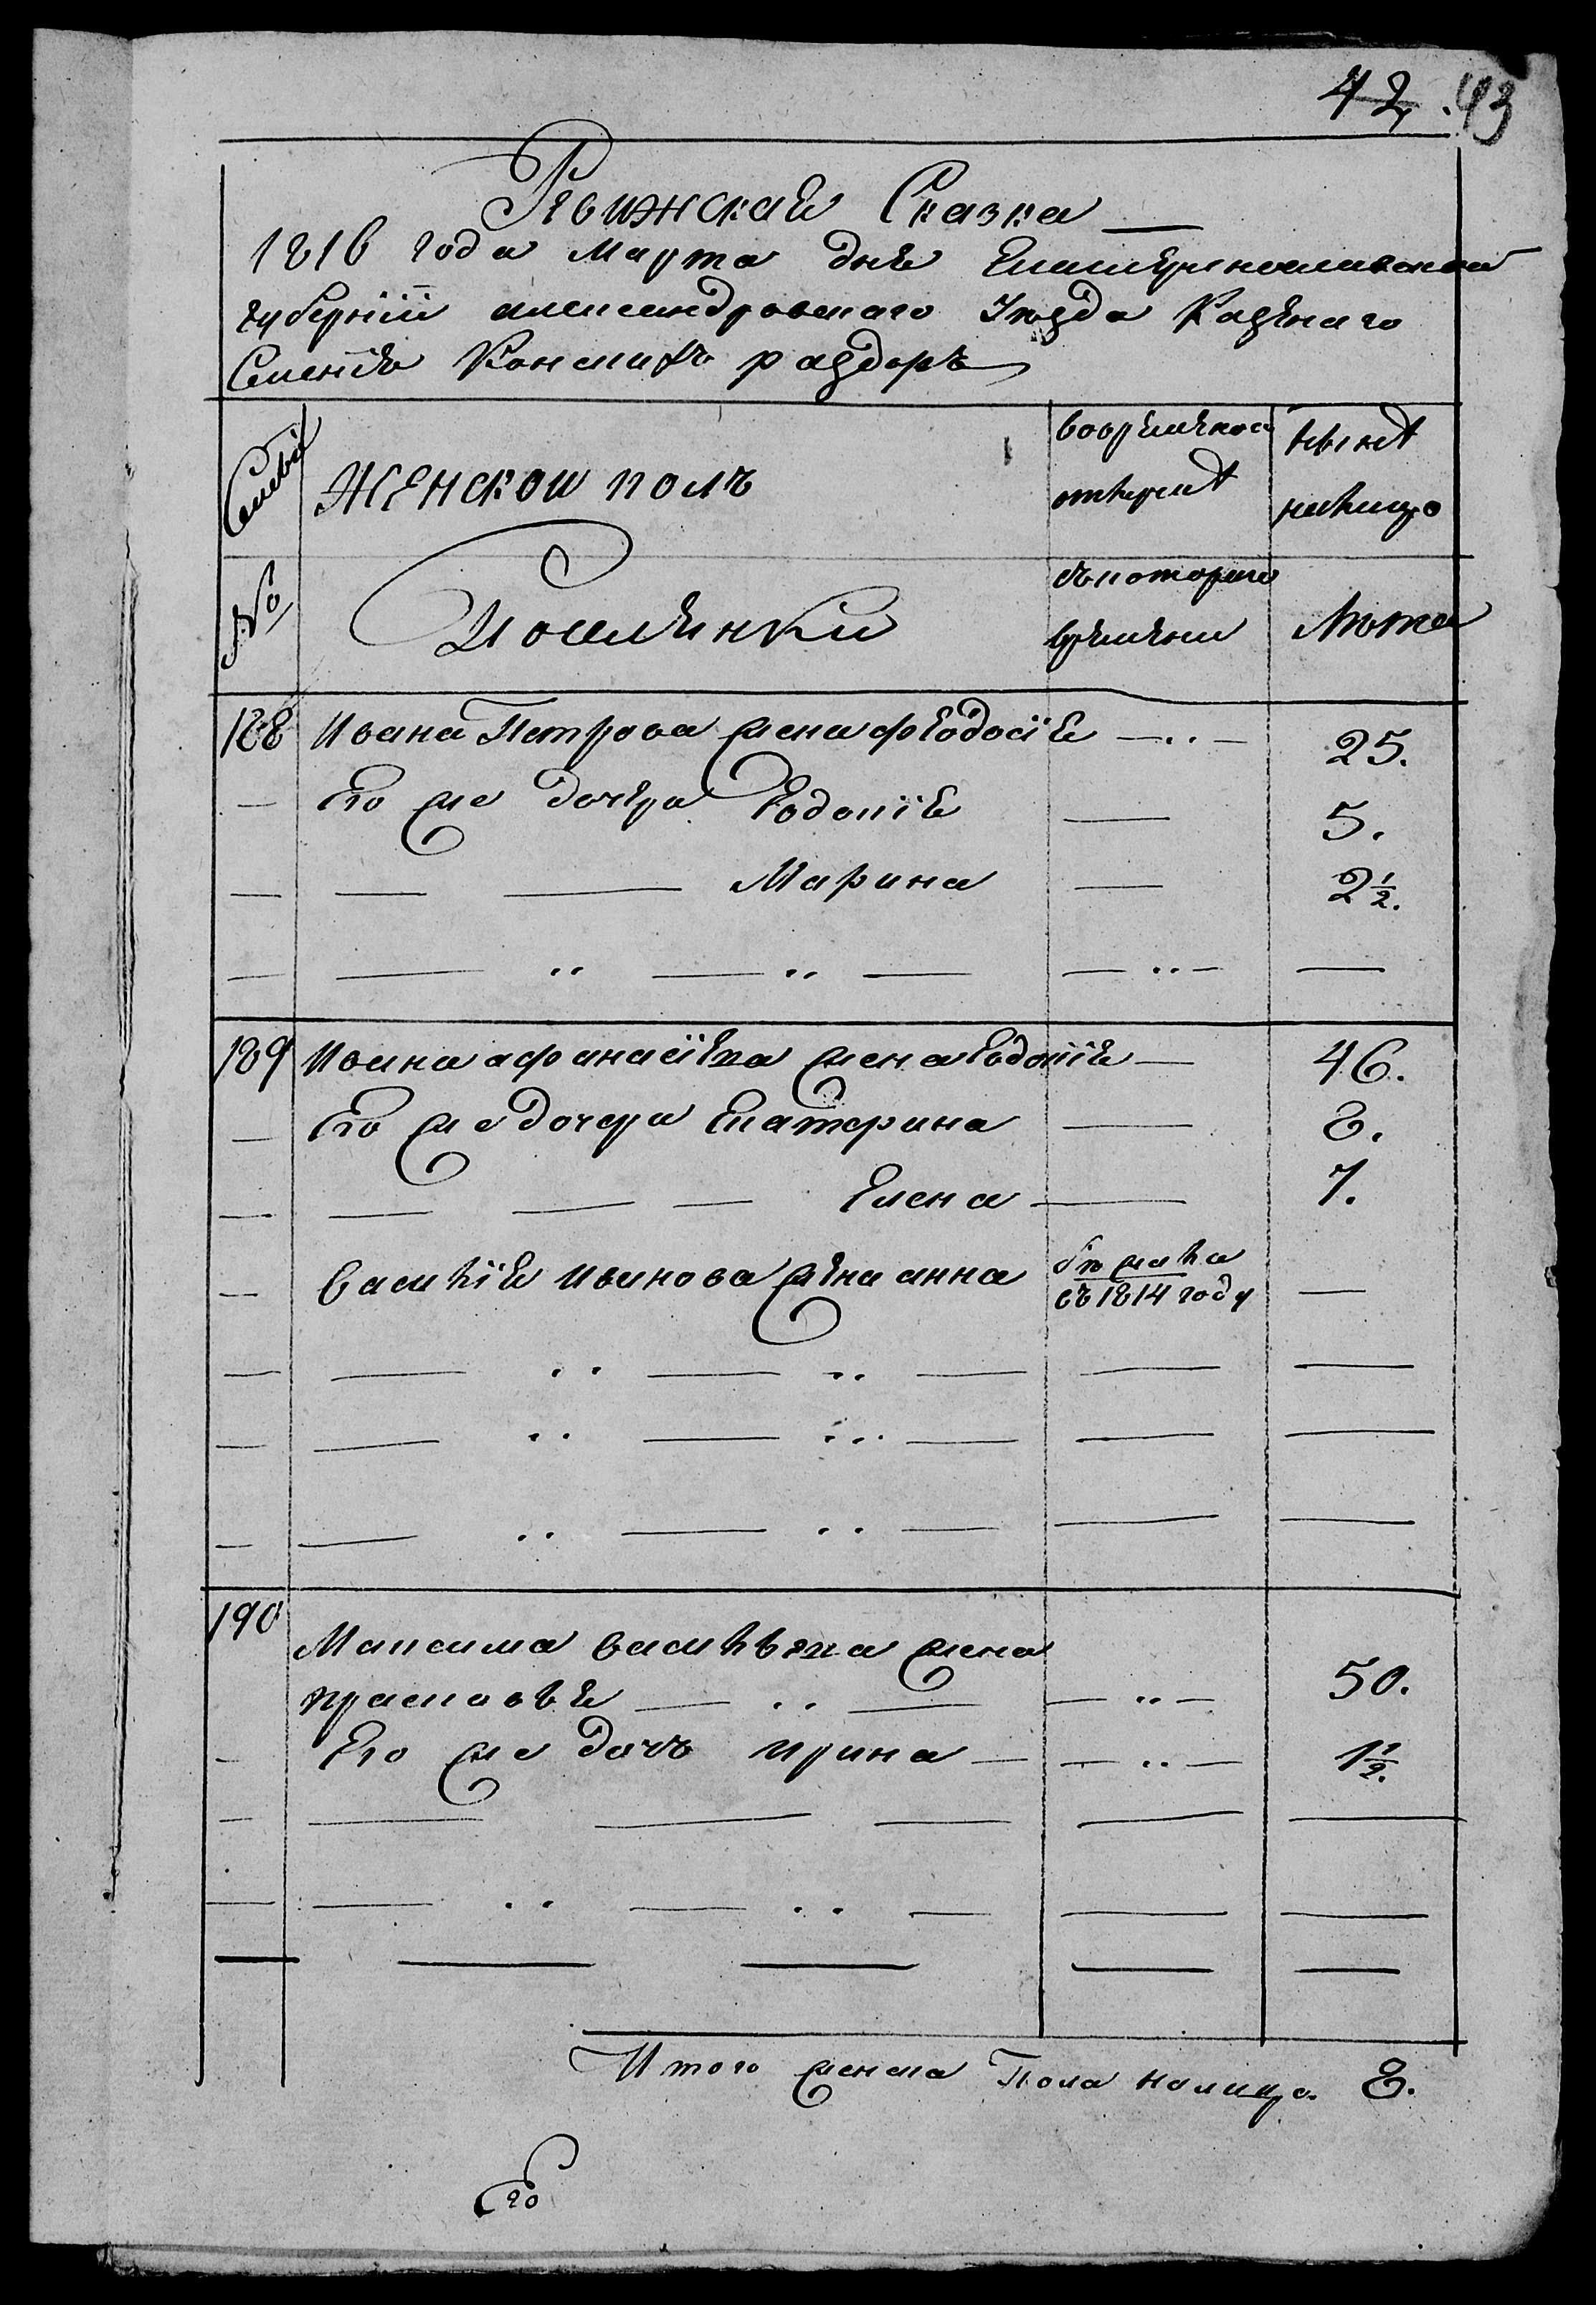 42. 43
Ревижская Сказка
1816 года Марта дня Екатеринославской
губернiи александровскаго Уезда Казенаго
Селенiя Конскихъ раздоръ
Семьи
Женской полъ
вовременной
отлучке
ныне
налицо
№
Поселянки
съкотораго
времени
Лѣта
188 Ивана Петрова жена феодосiя — .. — 25.
— Его же дочери Евдокiя — 5.
— — — Марина — 2½.
— — .. — .. — — .. — —
189 Ивана афанасiева жена Евдокiя — 46.
— Его же дочери Екатерина — 8.
— — — — Елена — 7.
— Василiя иванова жена анна
съ 1814 году —
— — .. — .. — — —
— — .. — ... — — —
— — .. — .. — — —
190 Максима васильева жена
прасковья — .. — — .. — 50.
— Его же дочь ирина — — .. — 1½.
— — — — — —
— — .. — .. — — —
— — — — —
Итого женска Пола налицо. 8.
Его